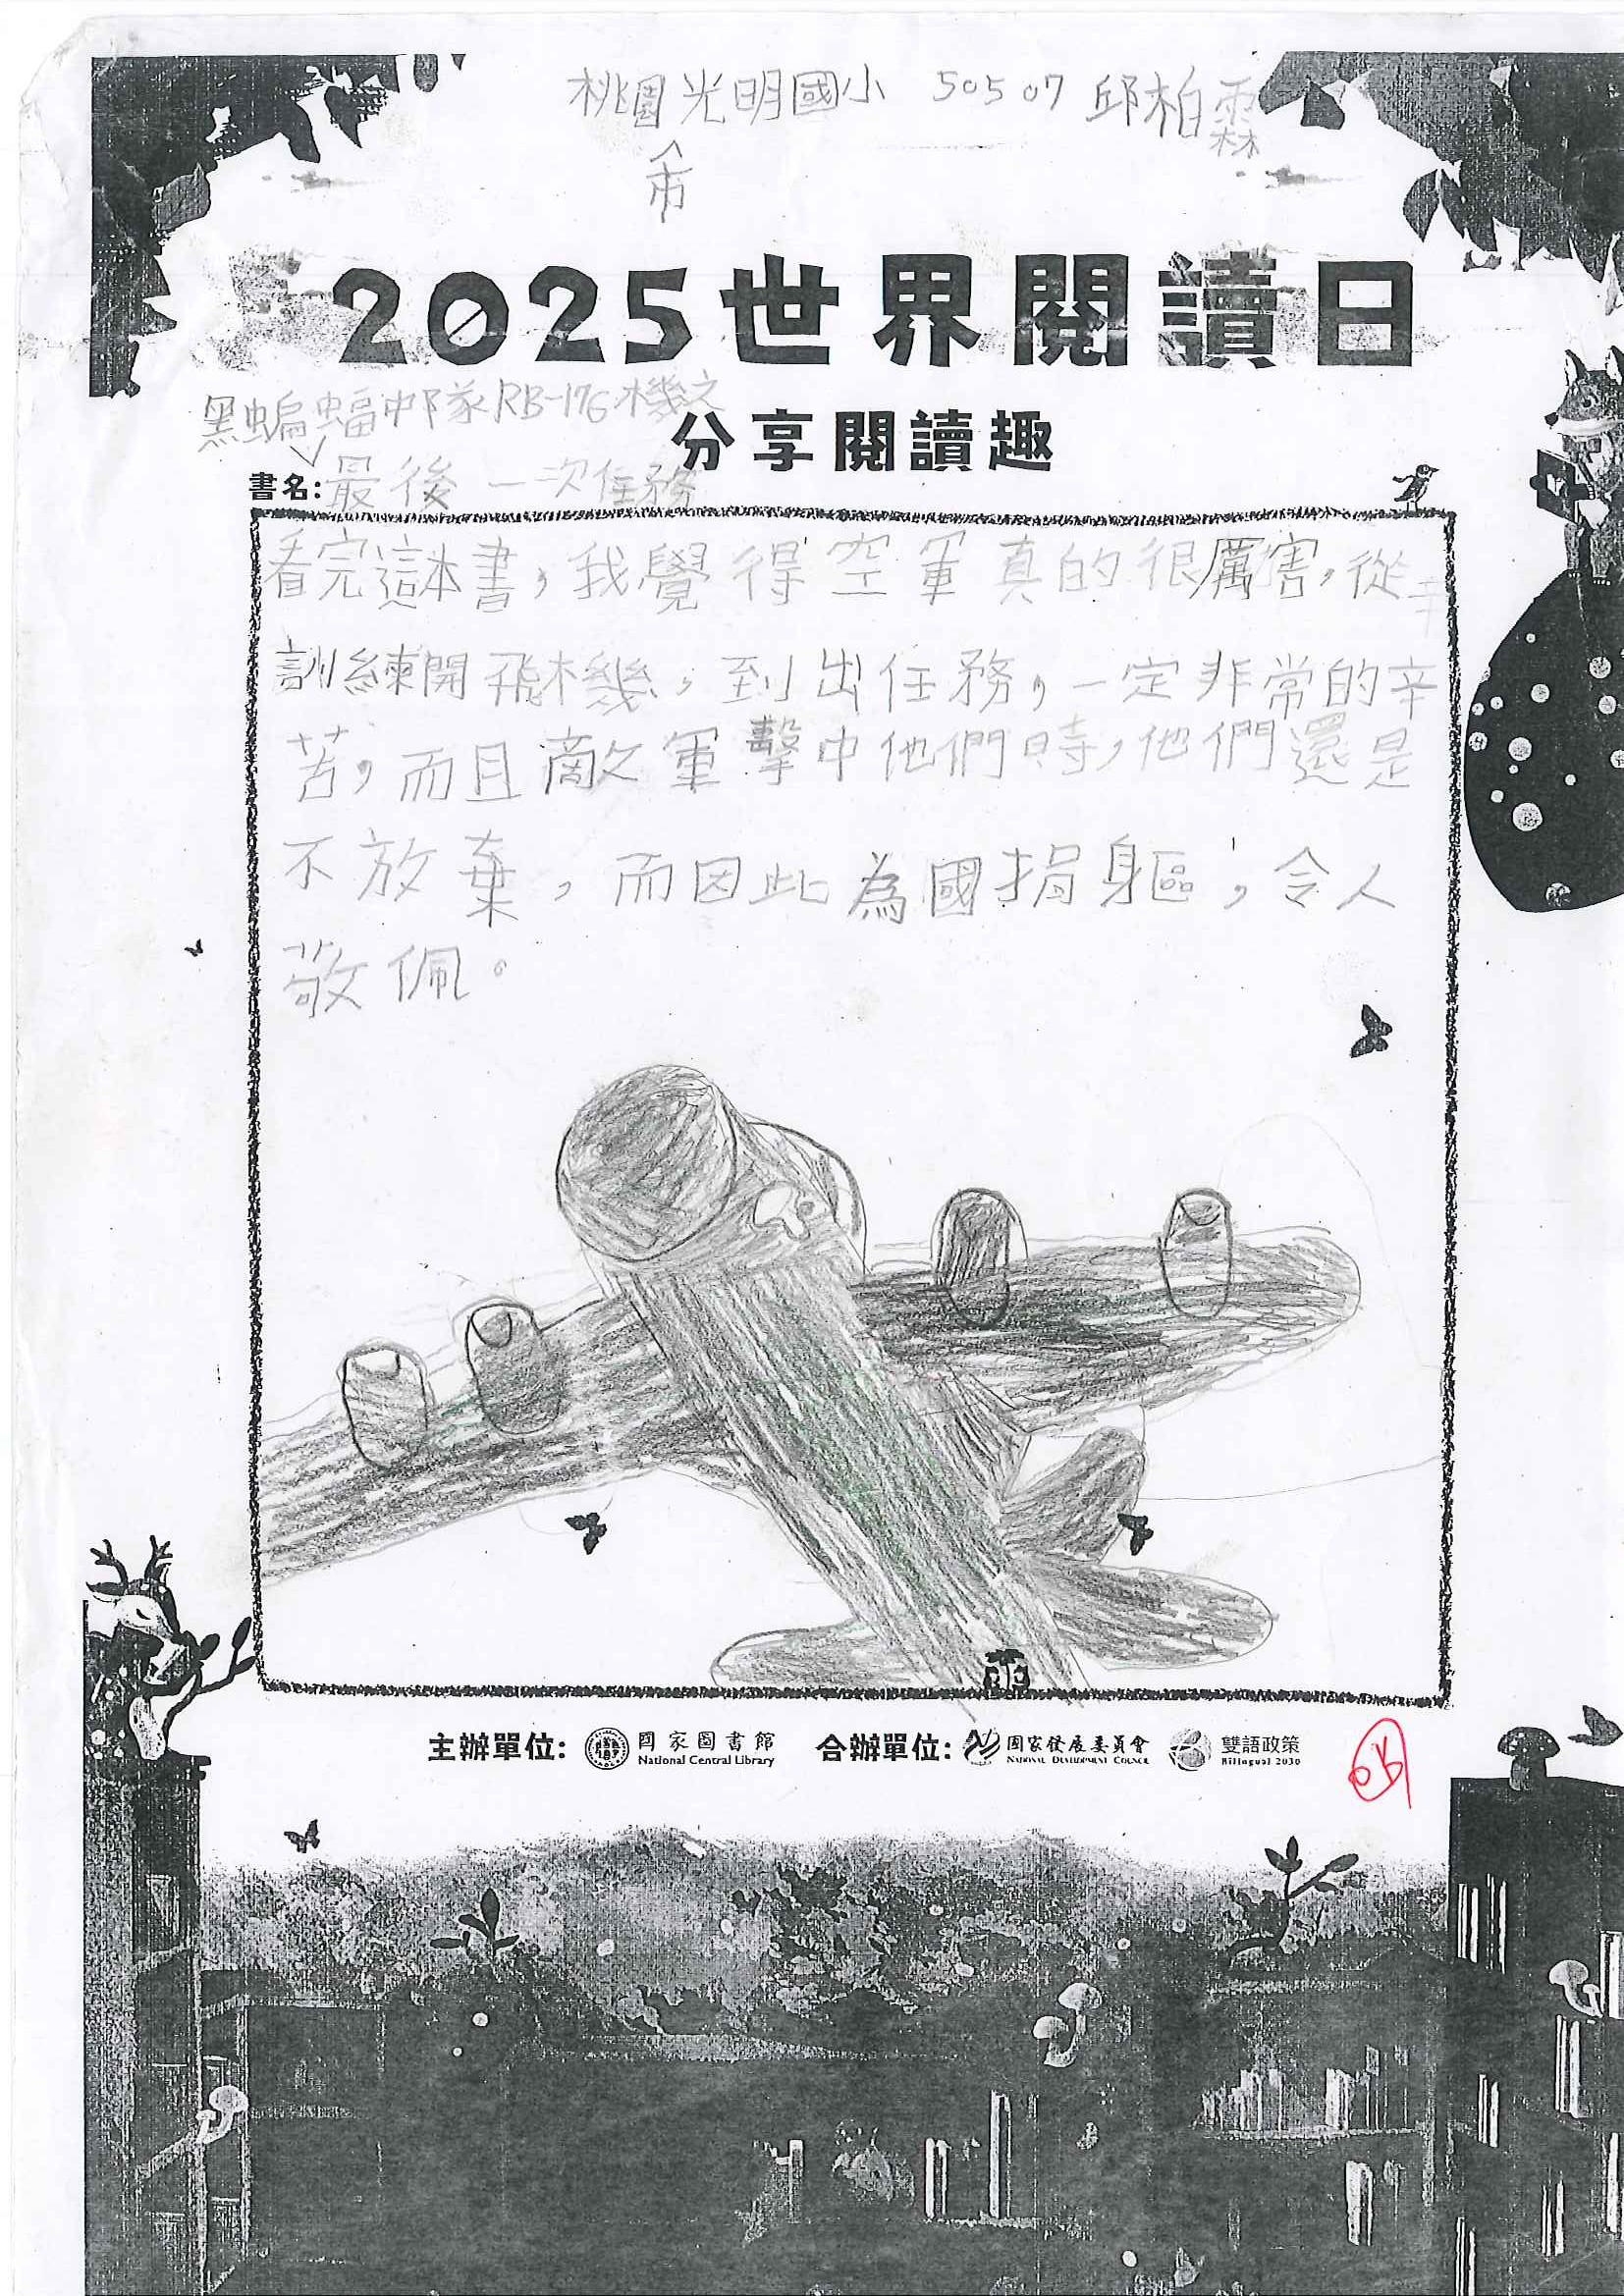 桃園市光明國小 50507 邱柏霖
2025世界閱讀日
分享閱讀趣
黑蝙蝠中隊RB-17G機之
書名:最後一次任務
看完這本書,我覺得空軍真的很厲害,從
訓練開飛機,到出任務,一定非常的辛
苦,而且敵軍擊中他們時,他們還是
不放棄,而因此為國捐身軀,令人
敬佩。
主辦單位: 國家圖書館 National Central Library 合辦單位: 國家發展委員會 National Development Council 雙語政策 Bilingual 2030